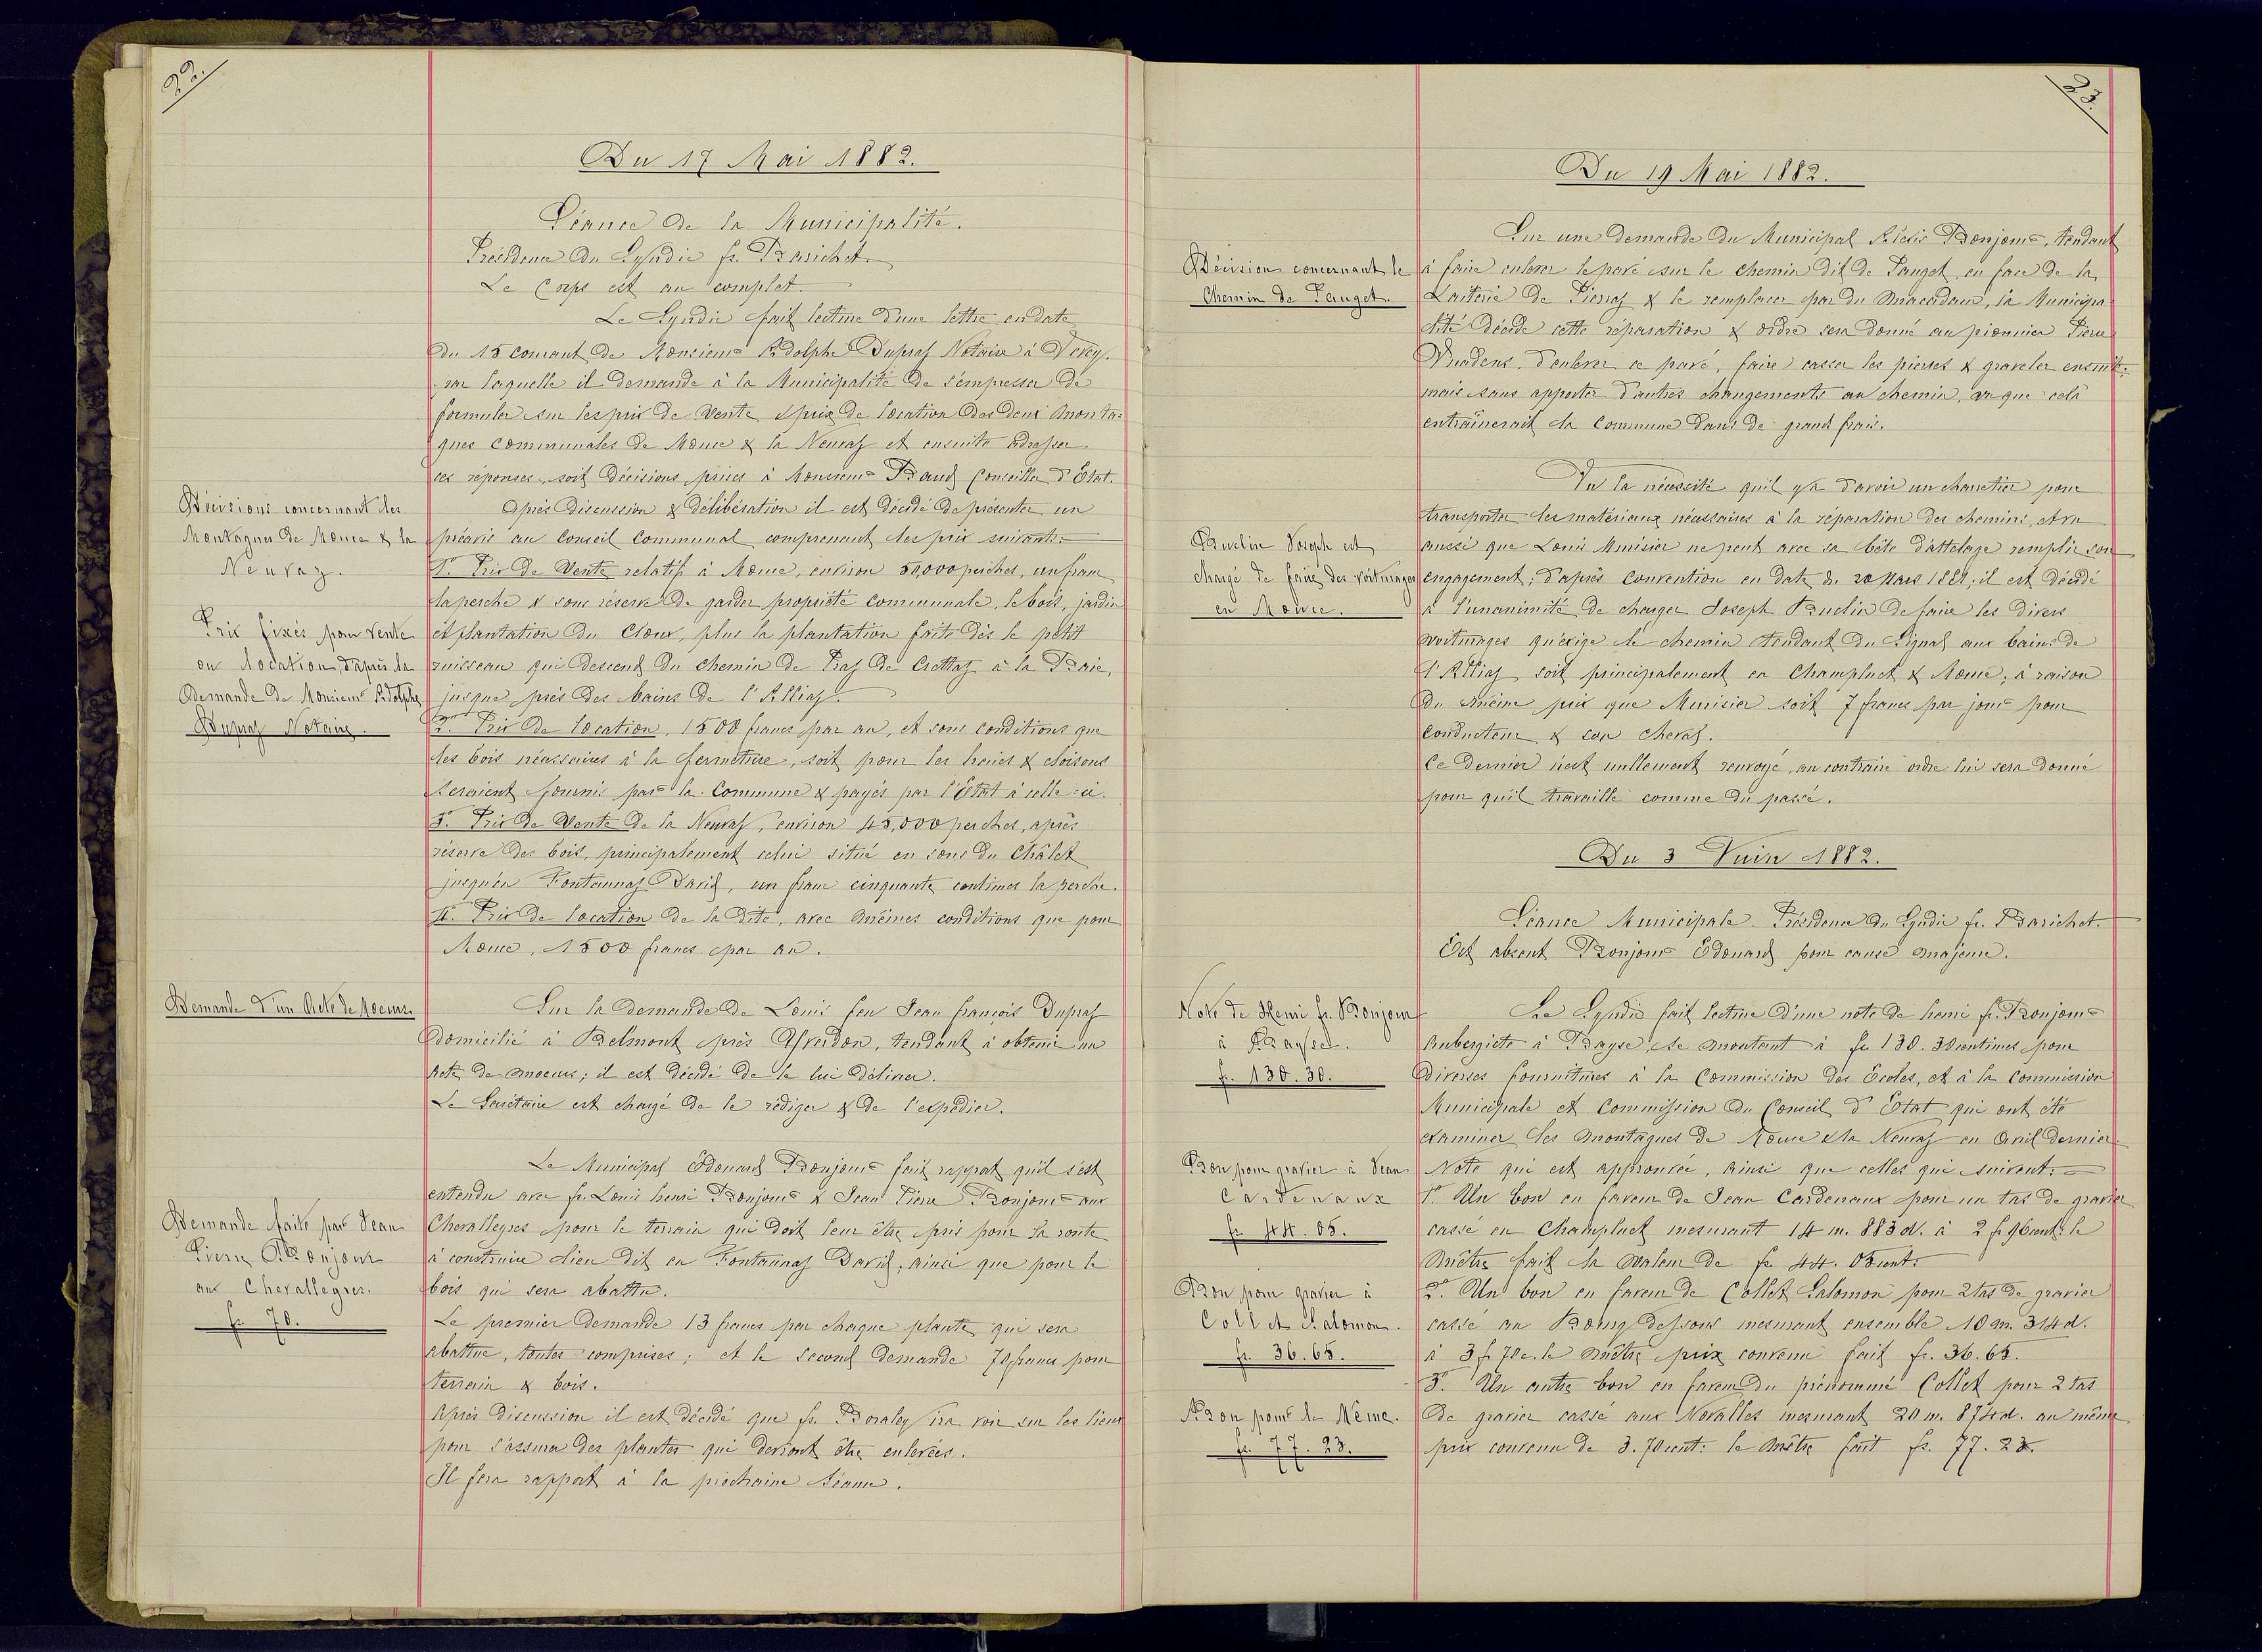 22.
Du 17 Mai 1882.
Séance de la Municipalité.
Présidence du Syndic fs. Barichet.
Le Corps est au complet.
Le Syndic fait lecture d'une lettre en date
du 15 courant de Monsieur Adolphe Dupraz Notaire à Vevey.
par laquelle il demande à la Municipalité de s'empresser de
formuler sur les prix de vente & prix de location des deux monta-
gnes communales de Mouce & la Neuvaz et ensuite adresser
ces réponses, soit décisions prises à Monsieur Baud Conseiller d'Etat.
Décisions concernant les
Montagnes de Mouce & la
Neuvaz.
Prix fixés pour vente
ou location, d'après la
demande de Monsieur Adolphe
Dupraz Notaire.
Après discussion & délibération il est décidé de présenter un
préavis au Conseil Communal comprenant les prix suivants:
1° Prix de Vente relatif à Mouce, environ 50,000 perches, un franc
la perche & sous réserve de garder propriété communale, le bois, jardin
et plantation du Cloux, plus la plantation faite dès le petit
ruisseau qui descend du chemin de Praz de Crettaz à la Baie,
jusque près des bains de l'Alliaz.
2° Prix de location, 1500 francs par an, et sous conditions que
les bois nécessaires à la fermeture, soit pour les haies & cloisons
seraient fournis par la Commune & payés par l'Etat à celle-ci.
3° Prix de Vente de la Neuvaz, environ 45,000 perches, après
réserve des bois, principalement celui situé en sous du Châlet
jusqu'en Fontannaz David, un franc cinquante centimes la perche.
4° Prix de location de la dite, avec mêmes conditions que pour
Mouce, 1500 francs par an.
Demande d'un Acte de Moeurs.
Sur la demande de Louis feu Jean françois Dupraz
domicilié à Belmont près d'Yverdon, tendant à obtenir un
acte de moeurs; il est décidé de le lui délivrer.
Le Secrétaire est chargé de le rédiger & de l'expédier.
Demande faite par Jean
Pierre Bonjour
aux Chevalleyres.
fr. 70.
Le Municipal Edouard Bonjour fait rapport qu'il s'est
entendu avec fs. Louis henri Bonjour & Jean Pierre Bonjour aux
Chevalleyres pour le terrain qui doit leur être pris pour la route
à construire lieu dit en Fontannaz David, ainsi que pour le
bois qui sera abattu.
Le premier demande 13 francs par chaque plante qui sera
abattue, toutes comprises; et le second demande 70 francs pour
terrain & bois.
Après discussion il est décidé que fs. Boraley ira voir sur les lieux
pour s'assurer des plantes qui devront être enlevées.
Il fera rapport à la prochaine séance.
23.
Du 19 Mai 1882.
Décision concernant le
Chemin de Fauget.
Sur une demande du Municipal Alexis Bonjour, tendant
à faire enlever le pavé sur le chemin dit de Fauget en face de la
Laiterie de Pierraz & le remplacer par du macadam, la Municipa-
lité décide cette réparation & ordre sera donné au pionnier Pierre
Vuadens d'enlever ce pavé, faire casser les pierres & graveler ensuite:
mais sans apporter d'autres changements au chemin, vu que cela
entraînerait la Commune dans de grand frais.
Buclin Joseph est
chargé de faire des voiturages
en Mouce.
Vu la nécessité qu'il y a d'avoir un charretier pour
transporter les matériaux nécessaires à la réparation des chemins, et vu
aussi que Louis Munisier ne peut avec sa bête d'attelage remplir son
engagement; d'après convention en date du 20 Mars 1881; il est décidé
à l'unanimité de charger Joseph Buclin de faire les divers
voiturages qu'exige le chemin tendant du Signal aux bains de
l'Alliaz soit principalement en Champluet & Mouce; à raison
du même prix que Munisier soit 7 francs par jour pour
conducteur & son cheval.
Ce dernier n'est nullement renvoyé, au contraire ordre lui sera donné
pour qu'il travaille comme du passé.
Du 3 Juin 1882.
Séance Municipale. Présidence du Syndic fs. Barichet.
Est absent Bonjour Edouard pour cause majeure.
Note de Henri fs. Bonjour
à Bayse.
fr. 130.30.
Le Syndic fait lecture d'une note de henri fs. Bonjour
Aubergiste à Bayse, se montant à fr. 130.30 centimes pour
diverses fournitures à la Commission des Ecoles, et à la Commission
Municipale et Commission du Conseil d'Etat qui ont été
examiner les montagnes de Mouce & la Neuvaz en Avril dernier.
Note qui est approuvée, ainsi que celles qui suivent:
Bon pour gravier à Jean
Cardenaux
fr. 44.05.
1° Un bon en faveur de Jean Cardenaux pour un tas de gravier
cassé en Champluet mesurant 14 m. 883 d. à 2 f. 96 cent: le
mêtre fait la valeur de fr. 44. 05 cent:
Bon pour gravier à
Collet Salomon.
fr. 36.65.
2° Un bon en faveur de Collet Salomon pour 2 tas de gravier
cassé au Bourg dessous mesurant ensemble 10 m. 314 d.
à 3 f. 70 c. le mêtre prix convenu fait fr. 36.65.
Bon pour le Même.
fr. 77.23.
3° Un autre bon en faveur du prénommé Collet pour 2 tas
de gravier cassé aux Novalles mesurant 20 m. 874 d. au même
prix convenu de 3.70 cent: le mêtre fait fr. 77.23.